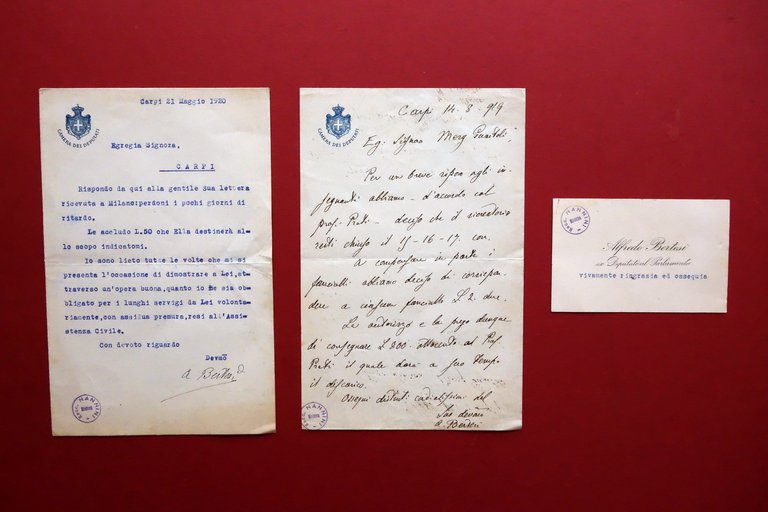 CAMERA DEI DEPUTATI
Carpi 21 Maggio 1920
Egregia Signora,
CARPI
Rispondo da qui alla gentile Sua lettera
ricevuta a Milano:perdoni i pochi giorni di
ritardo.
Le accludo L.50 che Ella destinerà al-
lo scopo indicatomi.
Io sono lieto tutte le volte che mi si
presenta l'occasione di dimostrare a Lei,at-
traverso un'opera buona,quanto io Le sia ob-
bligato per i lunghi servigi da Lei volonta-
riamente,con assidua premura,resi all'Assi-
stenza Civile.
Con devoto riguardo
Devmo
NANNINI
CAMERA DEI DEPUTATI
Carpi 14-8-919
Eg. Signor
Per un breve riposo agli in-
segnanti abbiamo - d'accordo col
prof. - deciso che il ricreatorio
resti chiuso il 15-16-17. con.
A compensare in parte i
fanciulli abbiamo deciso di corrispon-
dere a ciascun fanciullo L 2 due.
La autorizzo e la prego dunque
di consegnare L 200. al Prof.
il quale darà a suo tempo
il discarico.
Ossequi distinti cordialissimi del
Suo devmo
NANNINI
NANNINI
Alfredo Bertesi
ex Deputato al Parlamento
vivamente ringrazia ed ossequia